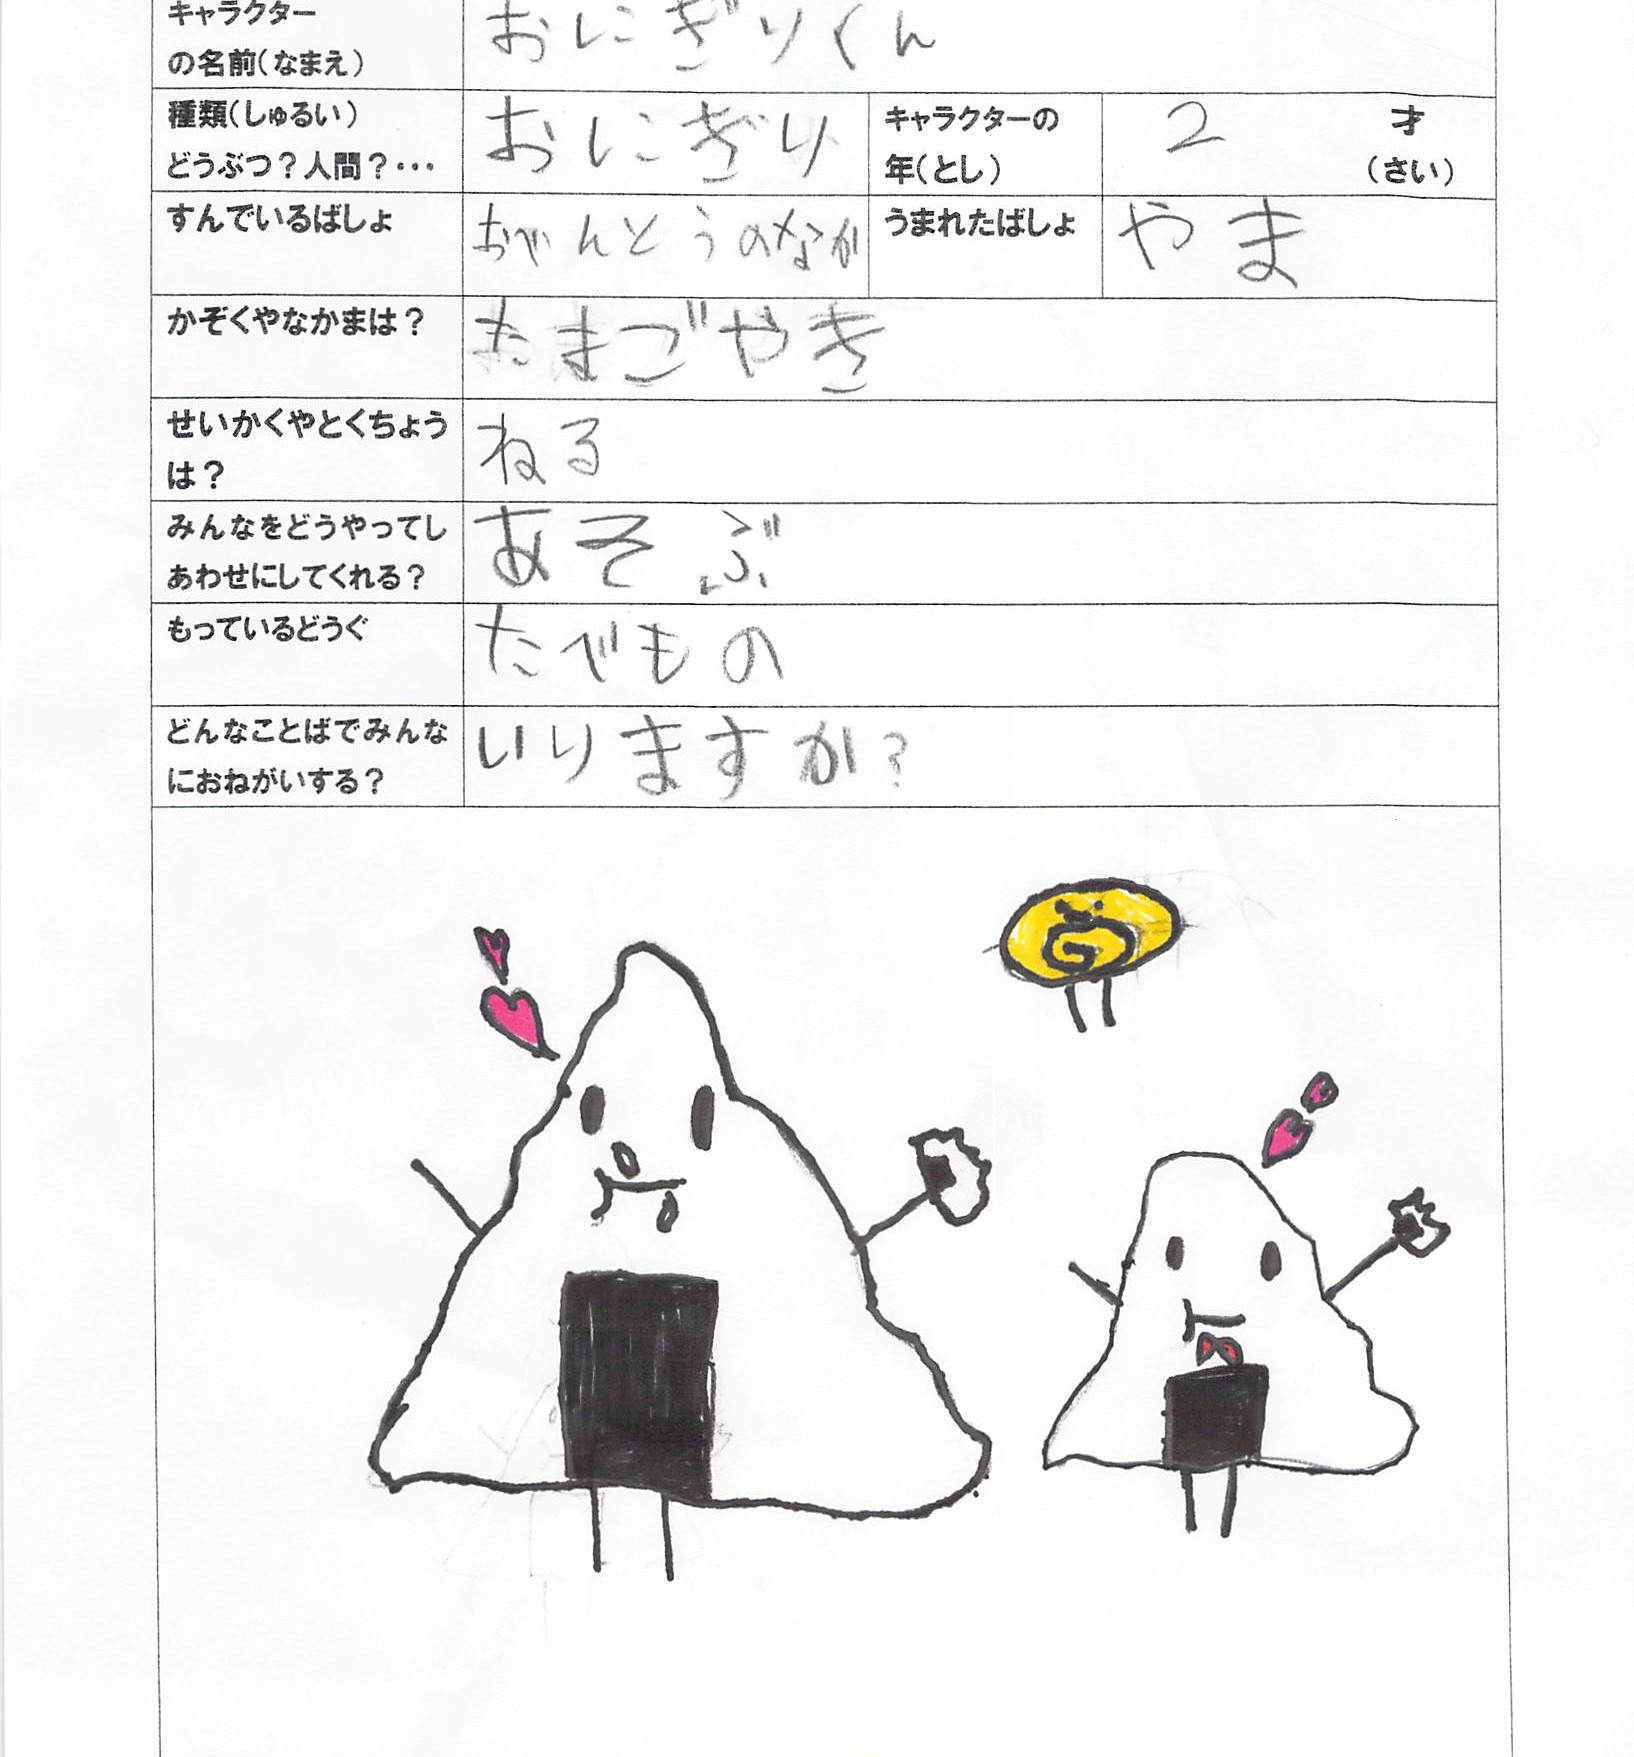 キャラクター
の名前(なまえ)
おにぎりくん
種類(しゅるい)
どうぶつ?人間?・・・
おにぎり
キャラクターの
年(とし)
2 才
(さい)
すんでいるばしょ
おべんとうのなか
うまれたばしょ
やま
かぞくやなかまは?
たまごやき
せいかくやとくちょう
は?
ねる
みんなをどうやってし
あわせにしてくれる?
あそぶ
もっているどうぐ
たべもの
どんなことばでみんな
におねがいする?
いりますか?